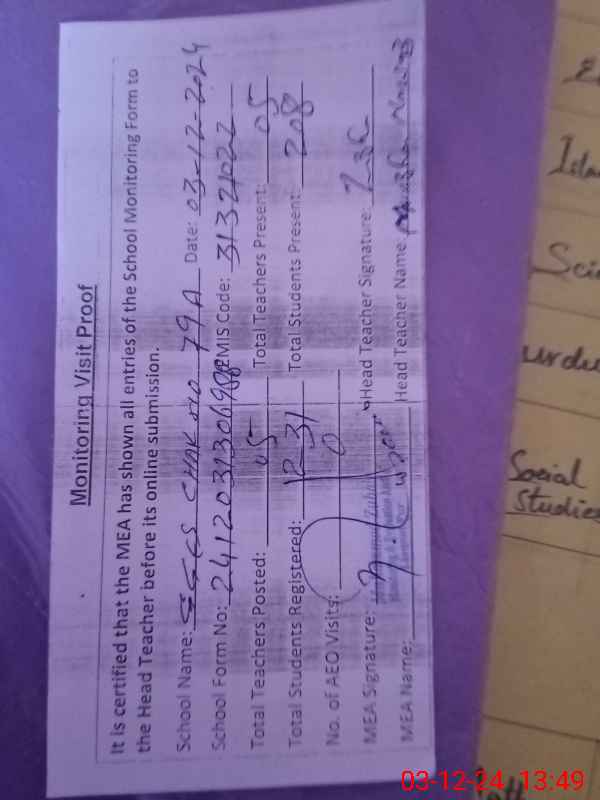 Monitoring Visit Proof
It is certified that the MEA has shown all entries of the School Monitoring Form to
the Head Teacher before its online submission.
School Name: CHAK NO 79A Date: 03-12-2024
School Form No: EMIS Code: 31321022
Total Teachers Posted: 05 Total Teachers Present: 05
Total Students Registered: 231 Total Students Present: 208
No. of AEO Visits: 0
MEA Signature: Head Teacher Signature:
MEA Name: Head Teacher Name:
Urdu
Social
Studies
03-12-24 13:49